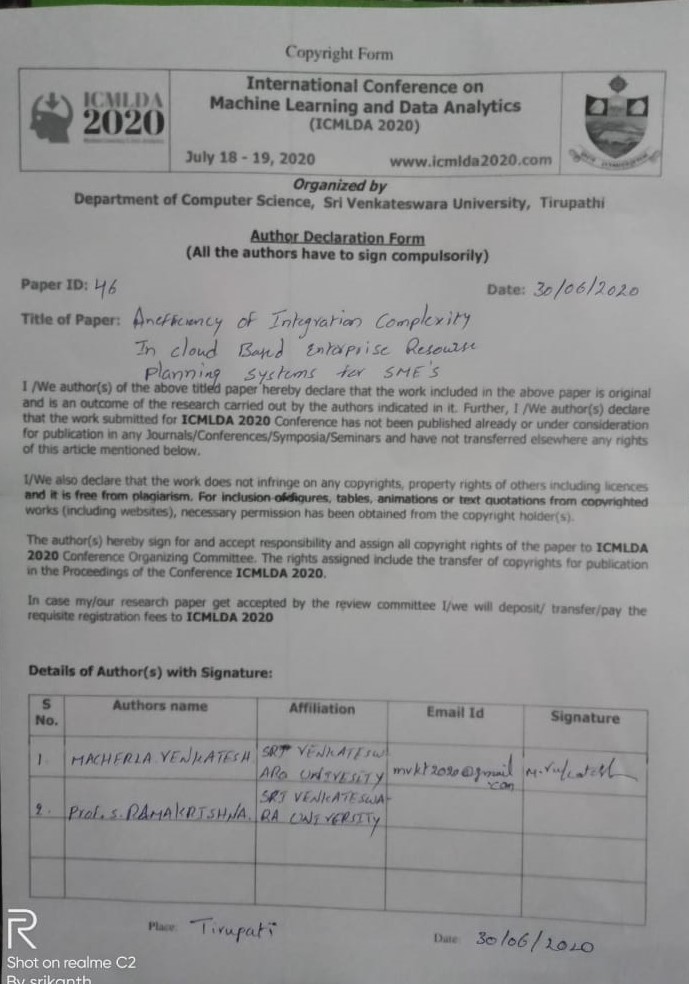 Copyright Form
ICMLDA
2020
International Conference on
Machine Learning and Data Analytics
(ICMLDA 2020)
July 18 - 19, 2020 www.icmlda2020.com
Organized by
Department of Computer Science, Sri Venkateswara University, Tirupathi
Author Declaration Form
(All the authors have to sign compulsorily)
Paper ID: 46 Date: 30/06/2020
Title of Paper: Anefficiency of Integration Complexity
In cloud Based Enterprise Resourse
Planning systems for SME's
I /We author(s) of the above titled paper hereby declare that the work included in the above paper is original
and is an outcome of the research carried out by the authors indicated in it. Further, I /We author(s) declare
that the work submitted for ICMLDA 2020 Conference has not been published already or under consideration
for publication in any Journals/Conferences/Symposia/Seminars and have not transferred elsewhere any rights
of this article mentioned below.
I/We also declare that the work does not infringe on any copyrights, property rights of others including licences
and it is free from plagiarism. For inclusion of figures, tables, animations or text quotations from copyrighted
works (including websites), necessary permission has been obtained from the copyright holder(s).
The author(s) hereby sign for and accept responsibility and assign all copyright rights of the paper to ICMLDA
2020 Conference Organizing Committee. The rights assigned include the transfer of copyrights for publication
in the Proceedings of the Conference ICMLDA 2020.
In case my/our research paper get accepted by the review committee I/we will deposit/ transfer/pay the
requisite registration fees to ICMLDA 2020
Details of Author(s) with Signature:
S No. Authors name Affiliation Email Id Signature
1. MACHERLA VENKATESH SRI VENKATESW
ARA UNIVESITY mvkt2020@gmail
.com M.Venkatesh
2. Prof. S. RAMAKRISHNA. SRI VENKATESWA-
RA UNIVERSITY
Place: Tirupati
Date: 30/06/2020
Shot on realme C2
By srikanth